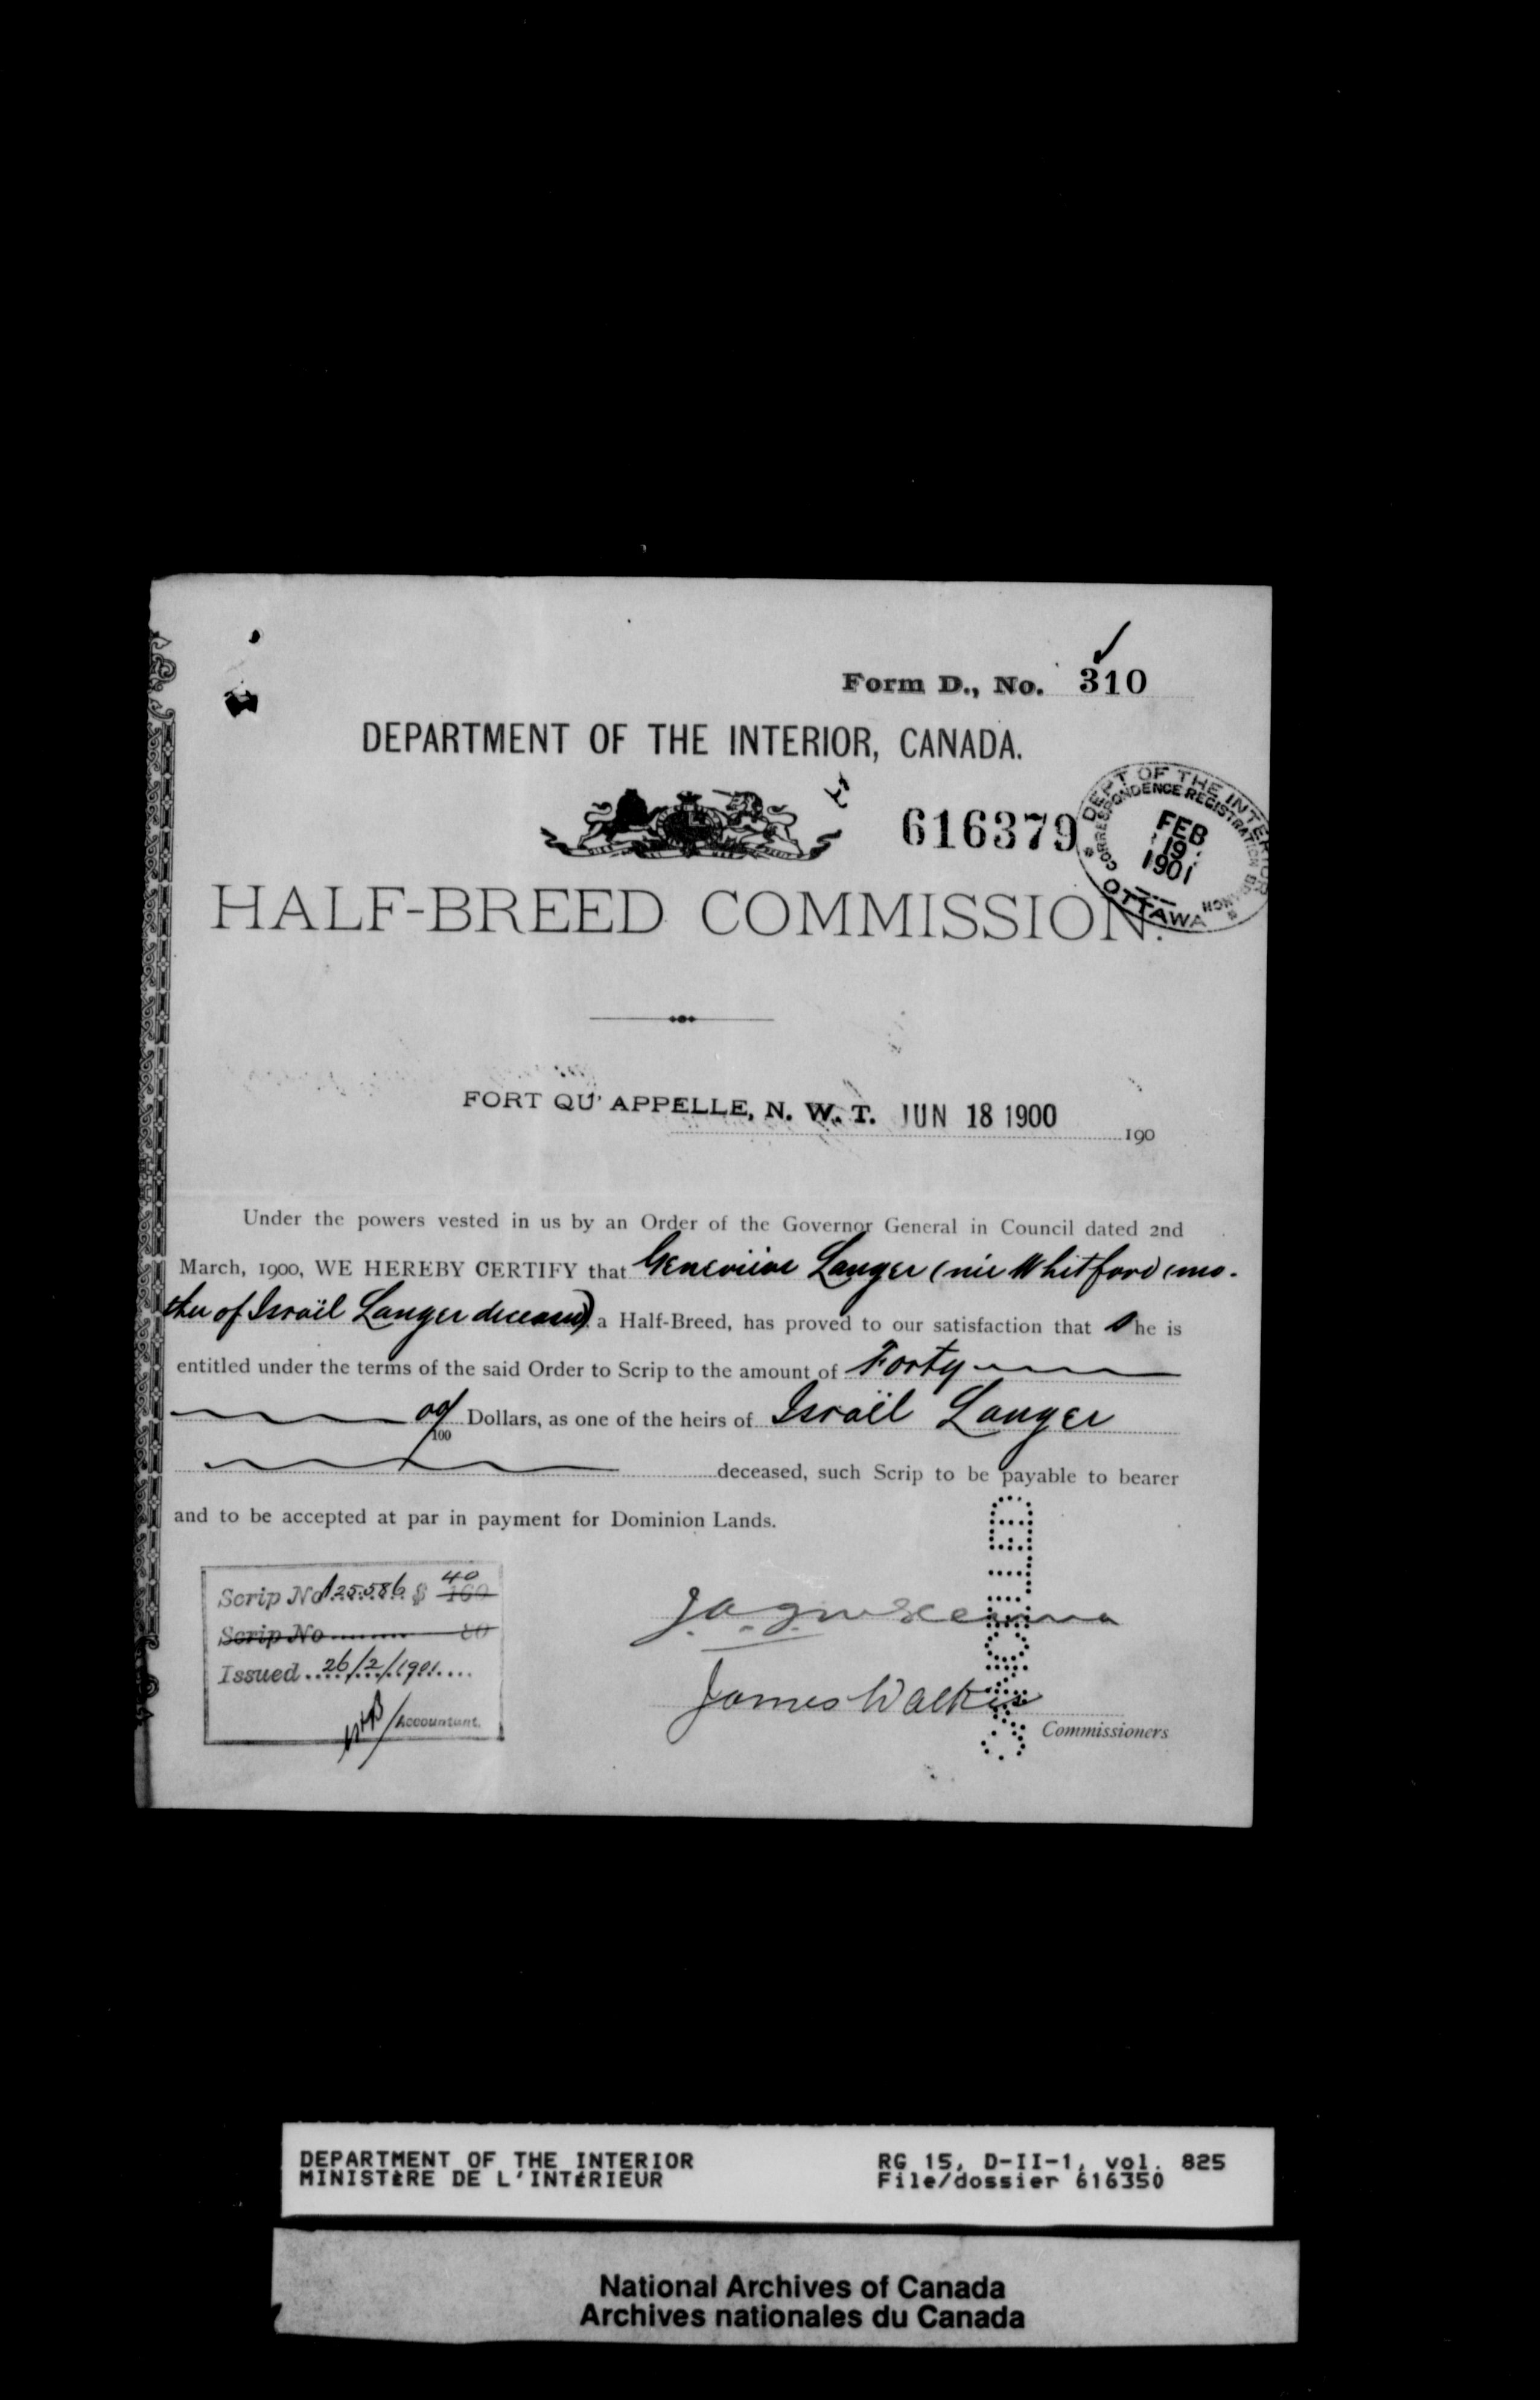 Form D., No. 310
DEPARTMENT OF THE INTERIOR, CANADA.
616379
DEPT OF THE INTERIOR
CORRESPONDENCE REGISTRATION BRANCH
FEB
19
1901
OTTAWA
HALF-BREED COMMISSION.
FORT QU'APPELLE, N. W. T. JUN 18 1900 190
Under the powers vested in us by an Order of the Governor General in Council dated 2nd
March, 1900, WE HEREBY CERTIFY that Geneviève Langer (née Whitford (mo-
ther of Israël Langer deceased) a Half-Breed, has proved to our satisfaction that She is
entitled under the terms of the said Order to Scrip to the amount of Forty
00/100 Dollars, as one of the heirs of Israël Langer
deceased, such Scrip to be payable to bearer
and to be accepted at par in payment for Dominion Lands.
Scrip No 125586 $ 40 160
Scrip No 80
Issued 26/2/1901
Accountant.
James Walker
Commissioners
DEPARTMENT OF THE INTERIOR RG 15, D-II-1, vol. 825
MINISTÈRE DE L'INTÉRIEUR File/dossier 616350
National Archives of Canada
Archives nationales du Canada